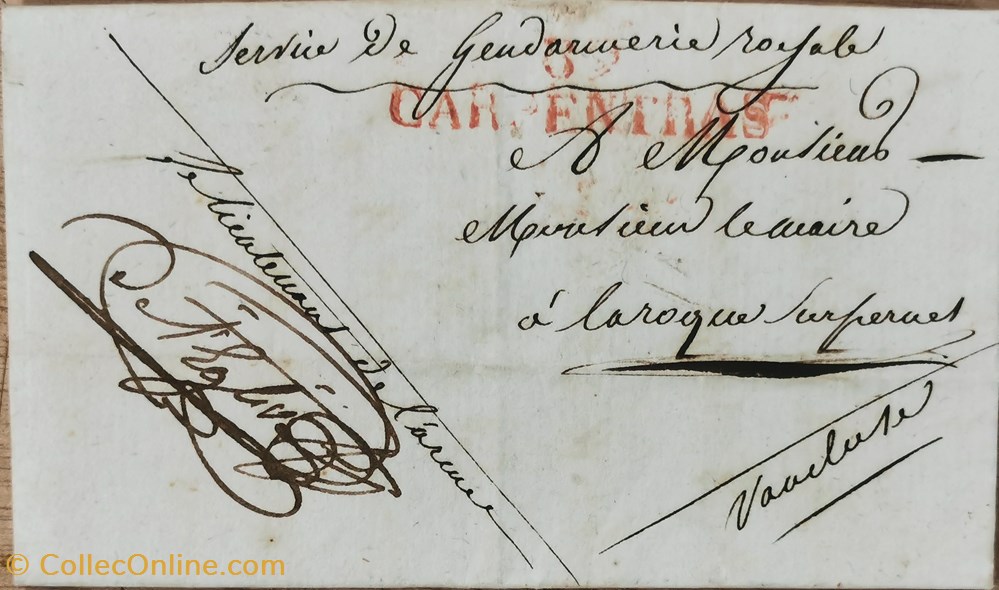 Service de Gendarmerie royale
CARPENTRAS
A Monsieur
Monsieur le maire
à laroque sur pernes
Vaucluse
Le lieutenant de l'arme
© CollecOnline.com